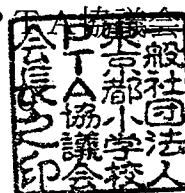 TA協議会
一般社団法人
東京都小学校
PTA協議会
会長之印